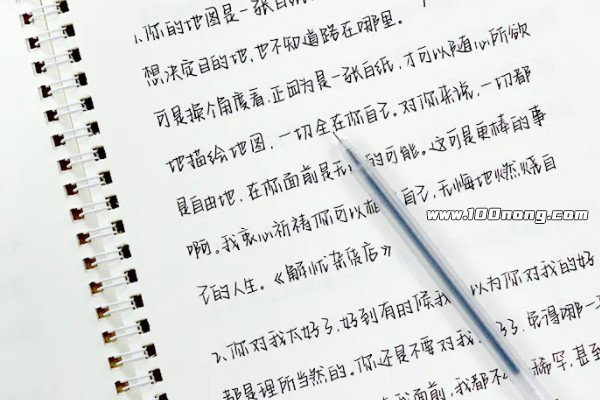 1、你的地图是一张白纸
想决定目的地,也不知道路在哪里。
可是换个角度看,正因为是一张白纸,才可以随心所欲
地描绘地图,一切全在你自己。对你来说,一切都
是自由地,在你面前是无 的可能。这可是更棒的事
啊。我衷心祈祷你可以相 自己,无悔地燃烧自
己的人生。《解忧杂货店》
2、你对我太好了,好到有的候我 以为你对我的好
都是理所当然的。你还是不要对我 了,免得哪一
我面前,我都不 稀罕,甚至
www.100nong.com